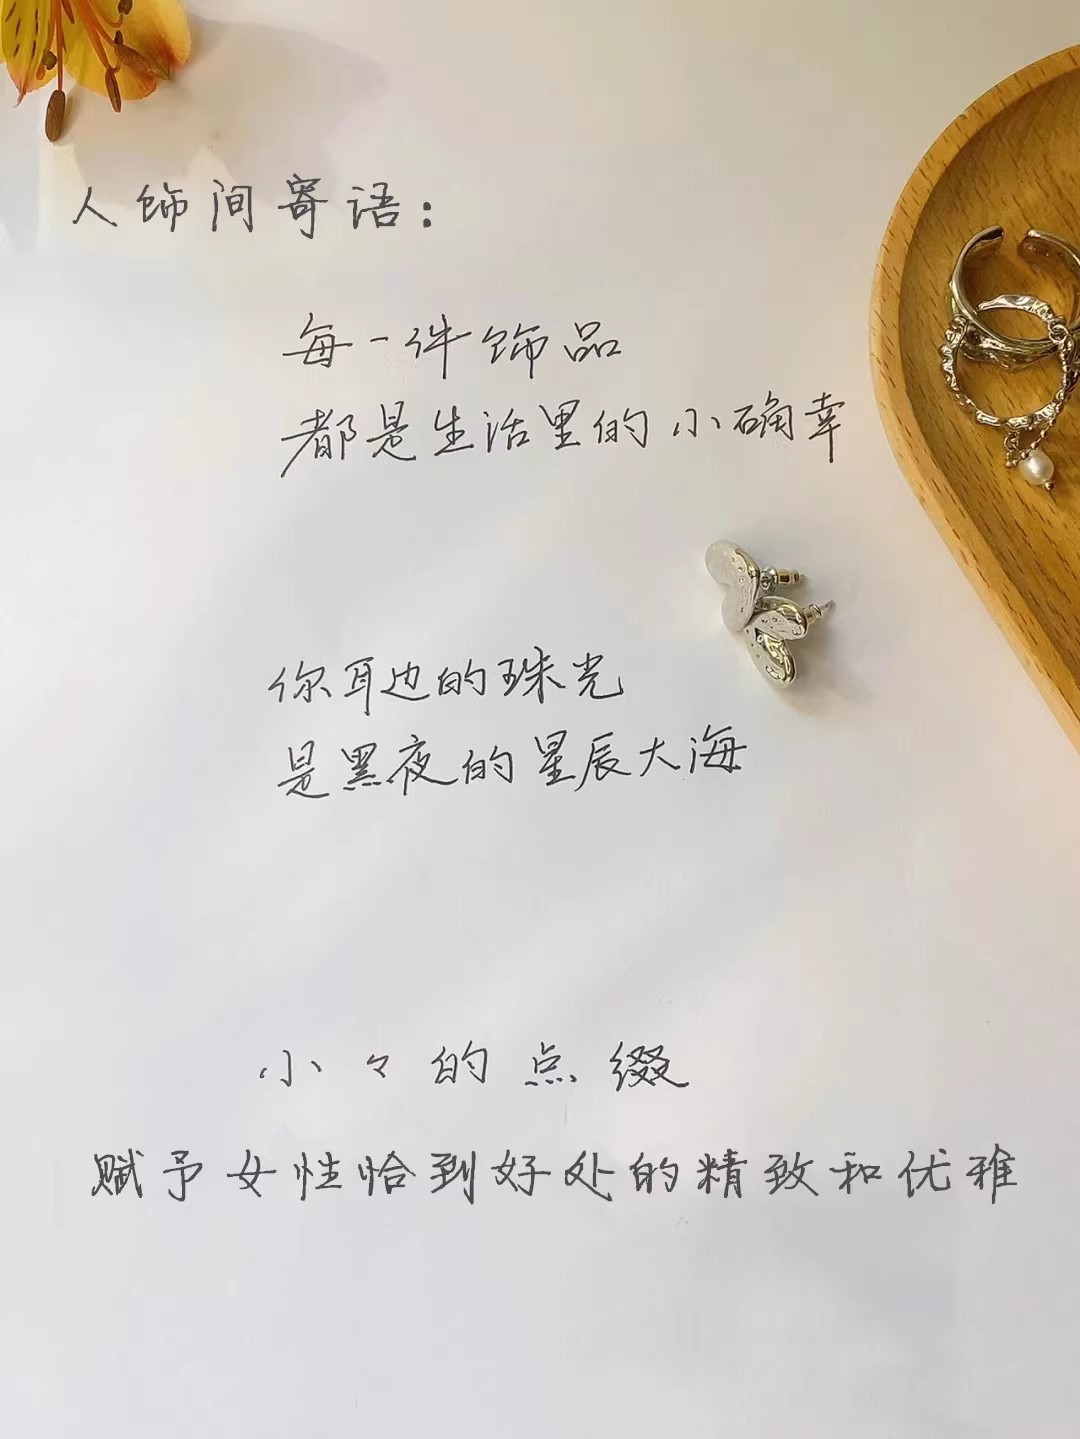 人饰间寄语：
每一件饰品
都是生活里的小确幸
你耳边的珠光
是黑夜的星辰大海
小々的点缀
赋予女性恰到好处的精致和优雅